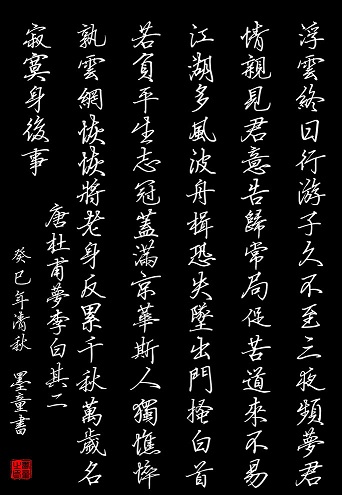 浮雲終日行游子久不至三夜頻夢君
情親見君意告歸常局促苦道來不易
江湖多風波舟楫恐失墜出門搔白首
若負平生志冠蓋滿京華斯人獨憔悴
孰雲網恢恢將老身反累千秋萬歲名
寂寞身後事
唐杜甫夢李白其二
癸巳年清秋 墨童書